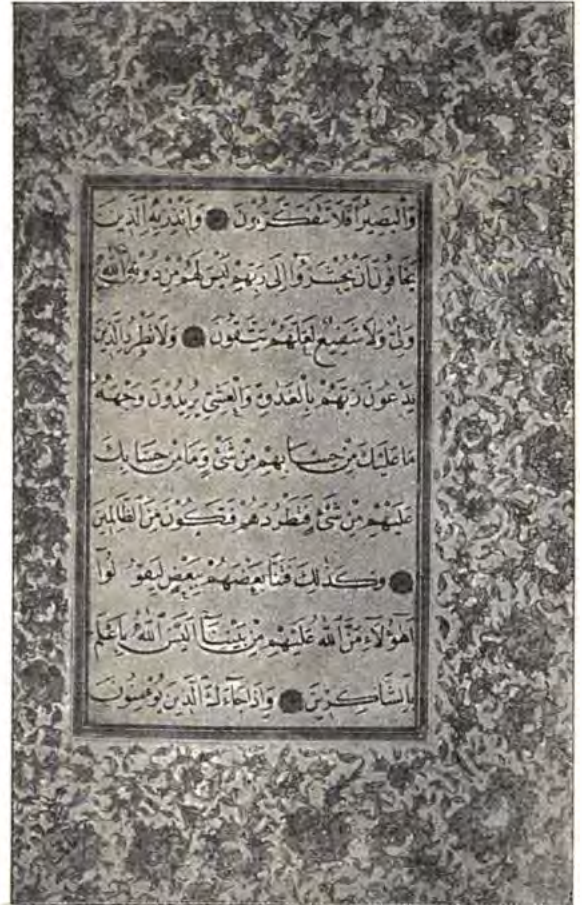 وَالْبَصِيرُ أَفَلَا تَتَفَكَّرُونَ وَأَنْذِرْ بِهِ الَّذِينَ
يَخَافُونَ أَنْ يُحْشَرُوا إِلَى رَبِّهِمْ لَيْسَ لَهُمْ مِنْ دُونِهِ
وَلِيٌّ وَلَا شَفِيعٌ لَعَلَّهُمْ يَتَّقُونَ وَلَا تَطْرُدِ الَّذِينَ
يَدْعُونَ رَبَّهُمْ بِالْغَدٰوةِ وَالْعَشِيِّ يُرِيدُونَ وَجْهَهُ
مَا عَلَيْكَ مِنْ حِسَابِهِمْ مِنْ شَيْءٍ وَمَا مِنْ حِسَابِكَ
عَلَيْهِمْ مِنْ شَيْءٍ فَتَطْرُدَهُمْ فَتَكُونَ مِنَ الظَّالِمِينَ
وَكَذٰلِكَ فَتَنَّا بَعْضَهُمْ بِبَعْضٍ لِيَقُولُوا
أَهٰؤُلَاءِ مَنَّ اللهُ عَلَيْهِمْ مِنْ بَيْنِنَا أَلَيْسَ اللهُ بِأَعْلَمَ
بِالشَّاكِرِينَ وَإِذَا جَاءَكَ الَّذِينَ يُؤْمِنُونَ